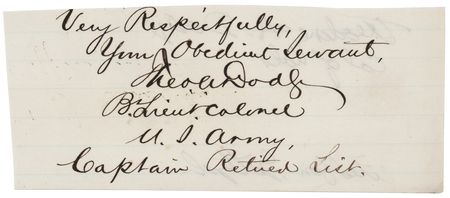 Very Respectfully,
Your Obedient Servant,
Theo A Dodge
Bt. Lieut. Colonel
U. S. Army,
Captain Retired List.